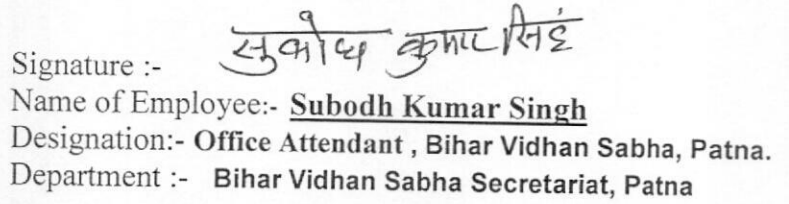 सुबोध कुमार सिंह
Signature :-
Name of Employee:- Subodh Kumar Singh
Designation:- Office Attendant , Bihar Vidhan Sabha, Patna.
Department :- Bihar Vidhan Sabha Secretariat, Patna